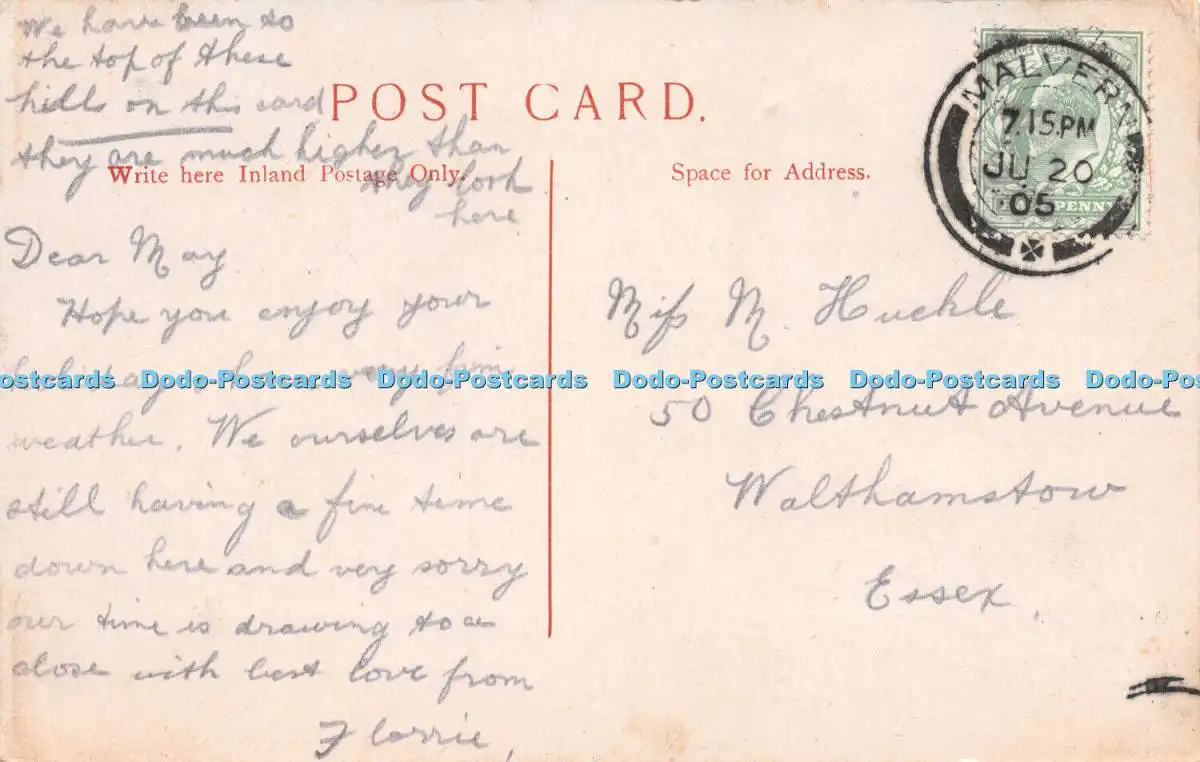 We have been to
the top of these
hills on this card
they are much higher than
they look
here
POST CARD.
Write here Inland Postage Only.
Space for Address.
MALVERN
7.15.PM
JU 20
05
PENNY
Dear May
Hope you enjoy your
weather. We ourselves are
still having a fine time
down here and very sorry
our time is drawing to a
close with best love from
Florrie,
Miss M. Huckle
50 Chestnut Avenue
Walthamstow
Essex.
Dodo-Postcards Dodo-Postcards Dodo-Postcards Dodo-Postcards